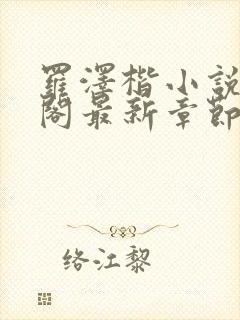 羅澤楷小說
閣最新章節
络江黎